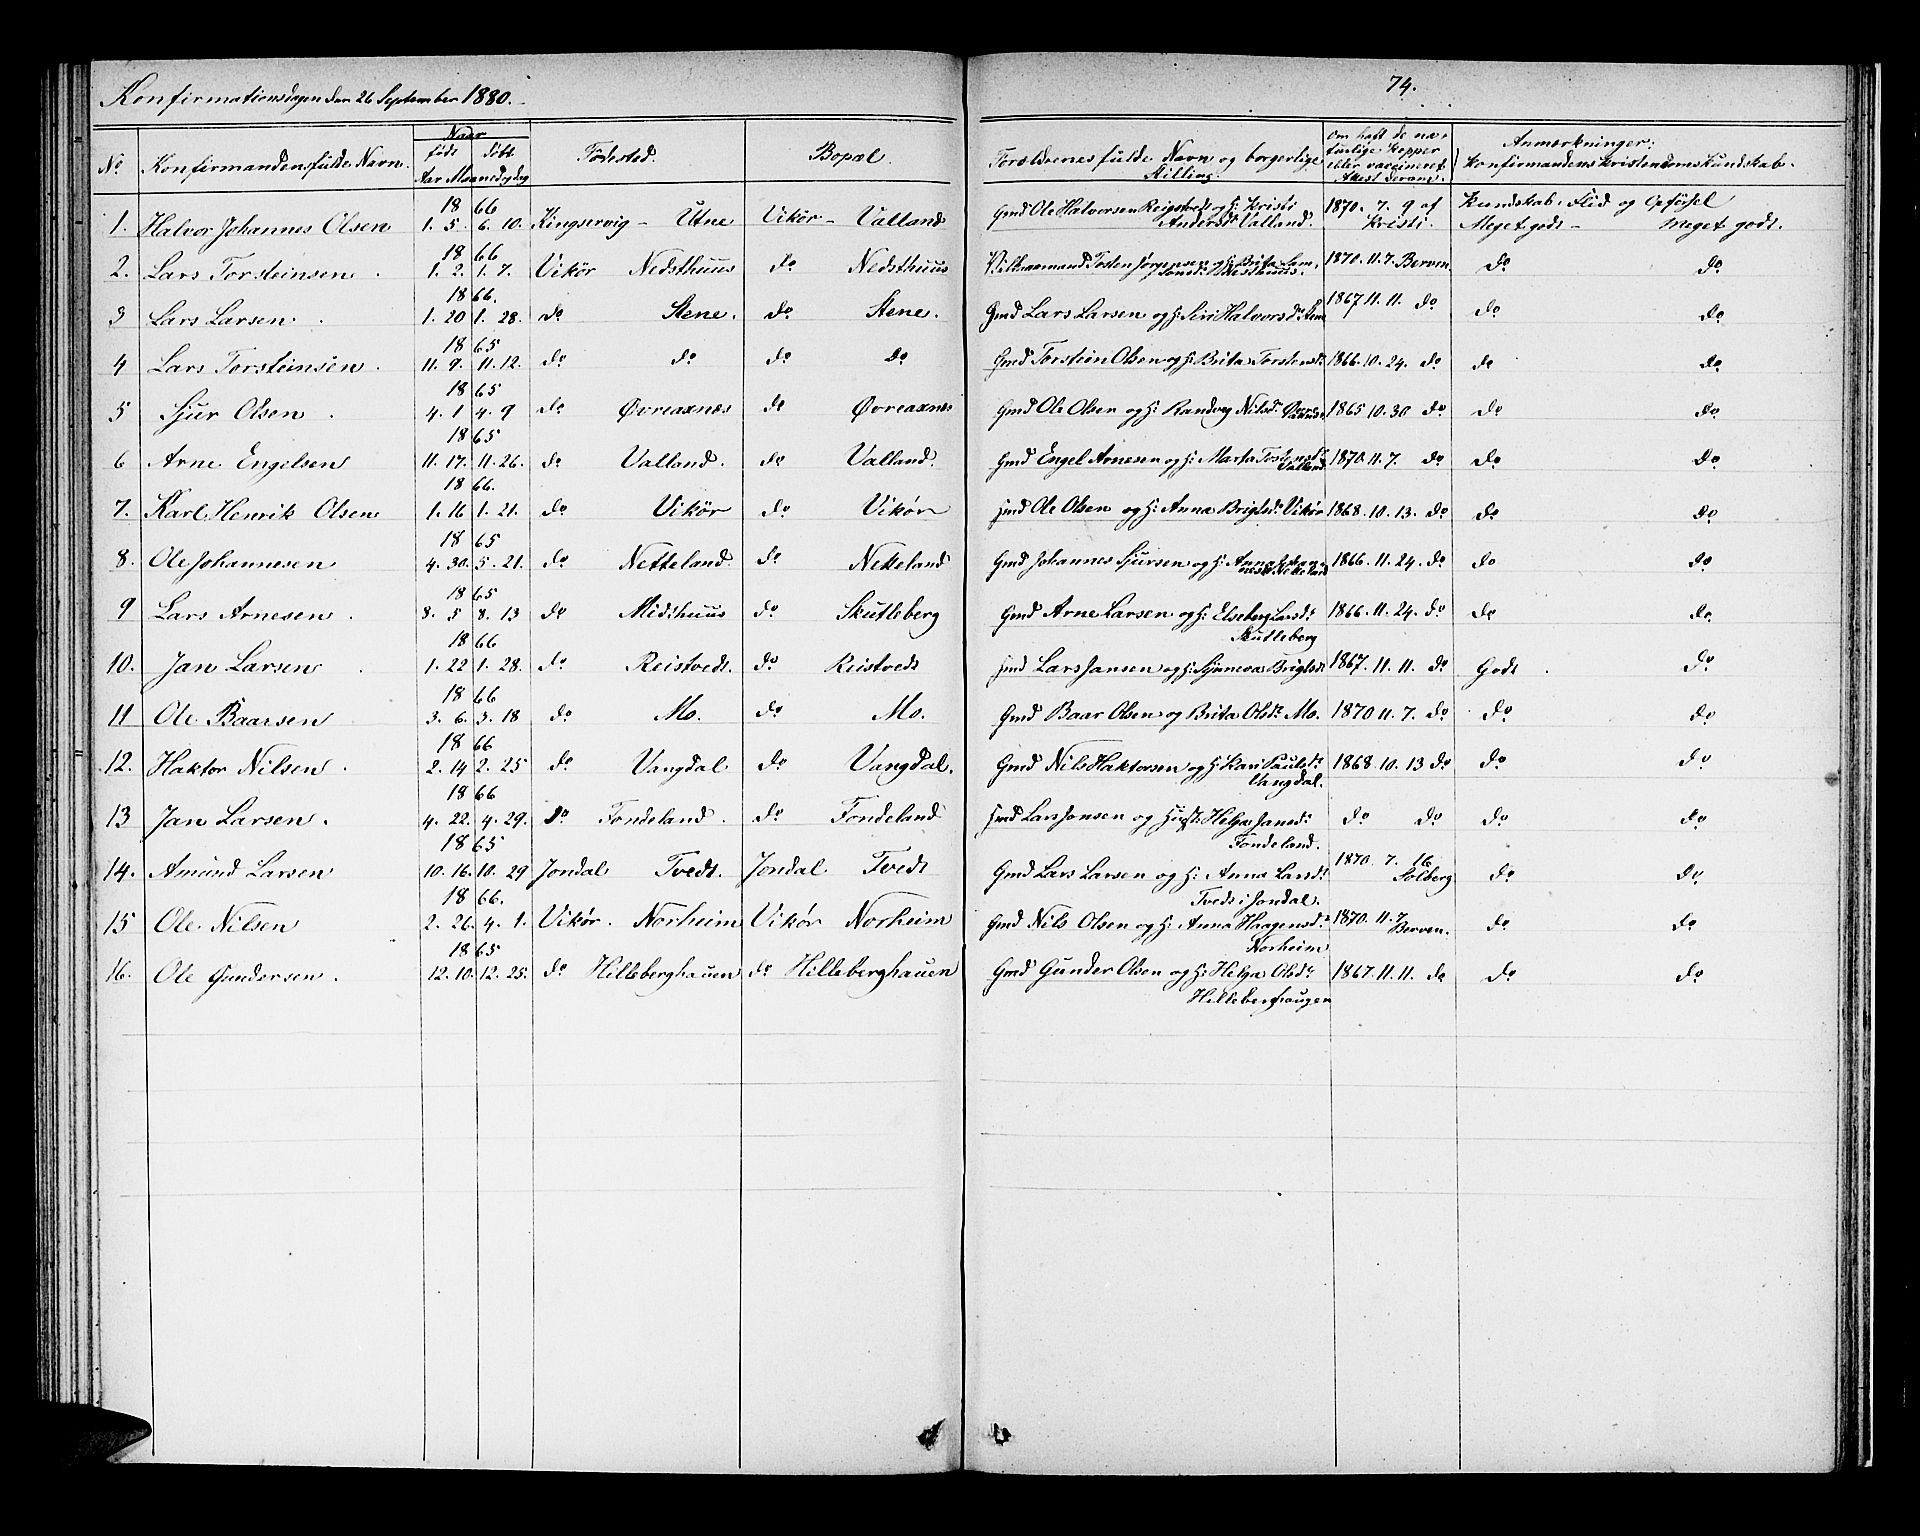 Konfirmationsdagen den 26 September 1880.
74.
No Konfirmandens fulde Navn. Naar født døbt Aar Maaned og dag Fødested. Bopæl. Forældrenes fulde Navn og borgerlige Stilling. Om haft de naturlige Kopper eller vaccineret Attest derom. Anmerkninger: Konfirmandens kristendomskundskab.
Kundskab. Flid og Opførsel
1. Halvor Johannes Olsen 1866 1. 5. 6. 10. Kingservig - Utne Vikör - Valland Gmd Ole Halvorsen Reigstved og H: Kristi Andersd: Valland. 1870. 7. 9 af Kristi. Meget godt - Meget godt.
2. Lars Torsteinsen. 1866 1. 2. 1. 7. Vikör Nedsthuus do Nedsthuus Torsten Jörgensen og H: Brita 1870. 11. 7. Berven do do
3 Lars Larsen. 1866. 1. 20 1. 28. do Stene. do Stene. Gmd Lars Larsen og H: Siri Halvorsd: Stene 1867. 11. 11. do do do
4 Lars Torsteinsen. 1865 11. 9. 11. 12. do do do do Gmd Torstein Olsen og H: Brita Torstensd: 1866. 10. 24. do do do
5 Sjur Olsen. 1865 4. 1 4. 9 do Øvreaxnes do Øvreaxnes Gmd Ole Olsen og H: Randveg Nilsd: Øvreaxnes 1865. 10. 30 do do do
6 Arne Engelsen 1865 11. 17. 11. 26. do Valland. do Valland. Gmd Engel Arnesen og H: Marta Torstensd: Valland 1870. 11. 7. do do do
7. Karl Henrik Olsen 1866. 1. 16 1. 21. do Vikör do Vikör Jmd Ole Olsen og H: Anna Brigtsd: Vikör 1868. 10. 13. do do do
8. Ole Johannesen 1865 4. 30. 5. 21. do Netteland. do Netteland Gmd Johannes Sjursen og H: Anna Netteland 1866. 11. 24. do do do
9 Lars Arnesen. 1865 8. 5 8. 13 do Midthuus do Skutleberg Gmd Arne Larsen og H: Elseberg Larsd: Skutleberg 1866. 11. 24. do do do
10. Jan Larsen. 1866 1. 22 1. 28. do Reistvedt. do Reistvedt Jmd Lars Jansen og H: Synneva Brigtsd: 1867. 11. 11. do Godt. do
11 Ole Baarsen 1866 3. 6. 3. 18 do Mo. do Mo. Gmd Baar Olsen og Brita Olsd: Mo. 1870 11. 7. do do do
12. Haktor Nilsen. 1866 2. 14 2. 25 do Vangdal do Vangdal. Gmd Nils Haktorsen og H: Kari Paulsd: Vangdal. 1868. 10. 13 do do do
13 Jan Larsen. 1866 4. 22. 4. 29. do Fondeland. do Fondeland Jmd Lars Jonsen og Hust: Helga Jansd: Fondeland. do do do do
14. Amund Larsen 1865 10. 16. 10. 29 Jondal Tvedt. Jondal Tvedt Gmd Lars Larsen og H: Anna Larsd: Tvedt i Jondal. 1870. 7. 16 Solberg do do
15 Ole Nilsen 1866. 2. 26. 4. 1. Vikör. Norheim Vikör Norheim Gmd Nils Olsen og H: Anna Haagensd: Norheim 1870. 11. 7. Berven. do do
16. Ole Gundersen. 1865 12. 10. 12. 25. do Hilleberghauen do Hilleberghauen Gmd Gunder Olsen og H: Helga Olsd: Hilleberghaugen 1867. 11. 11. do do do